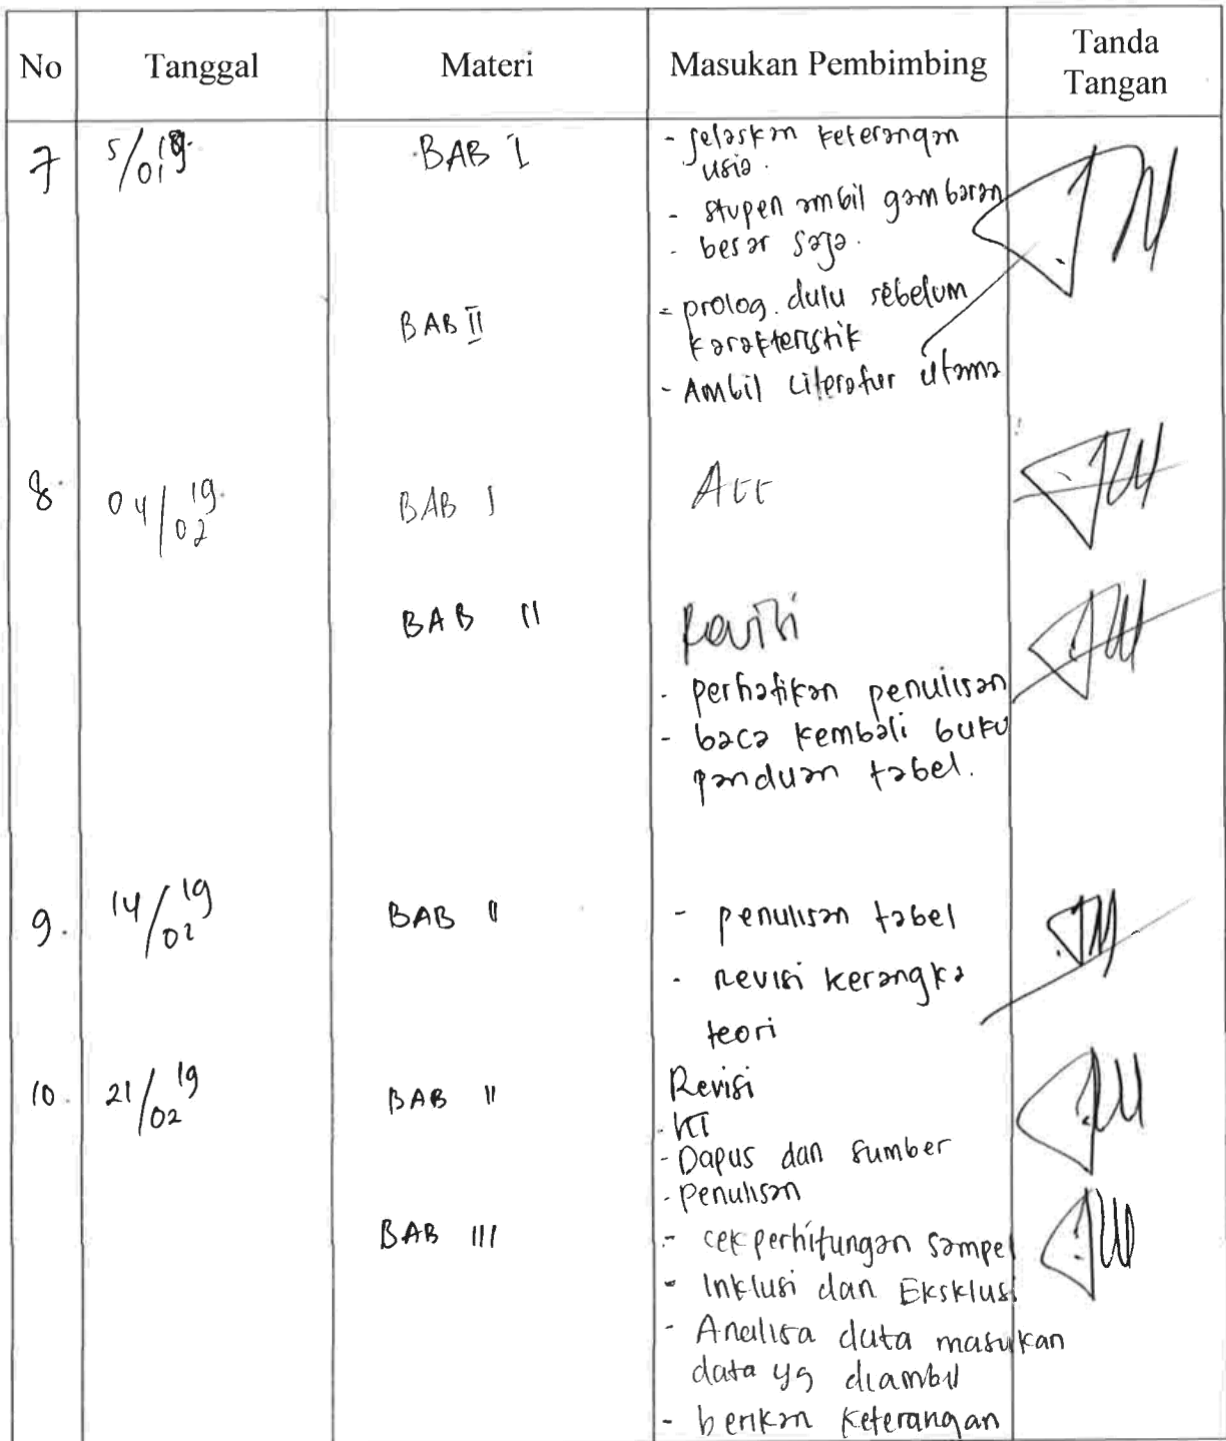 No Tanggal Materi Masukan Pembimbing Tanda
Tangan
7 5/01 19. BAB I - Jelaskan keterangan
usia.
- stupen ambil gambaran
- besar saja.
BAB II - prolog. dulu sebelum
karakteristik
- Ambil Literatur utama
8. 04/02 19. BAB I Acc
BAB II Revisi
- perhatikan penulisan
- baca kembali buku
panduan tabel.
9. 14/02 19 BAB II - penulisan tabel
- Revisi kerangka
teori
10. 21/02 19 BAB II Revisi
- KT
- Dapus dan sumber
- Penulisan
BAB III - cek perhitungan sampel
- Inklusi dan Eksklusi
- Analisa data masukan
data yg diambil
- berikan keterangan